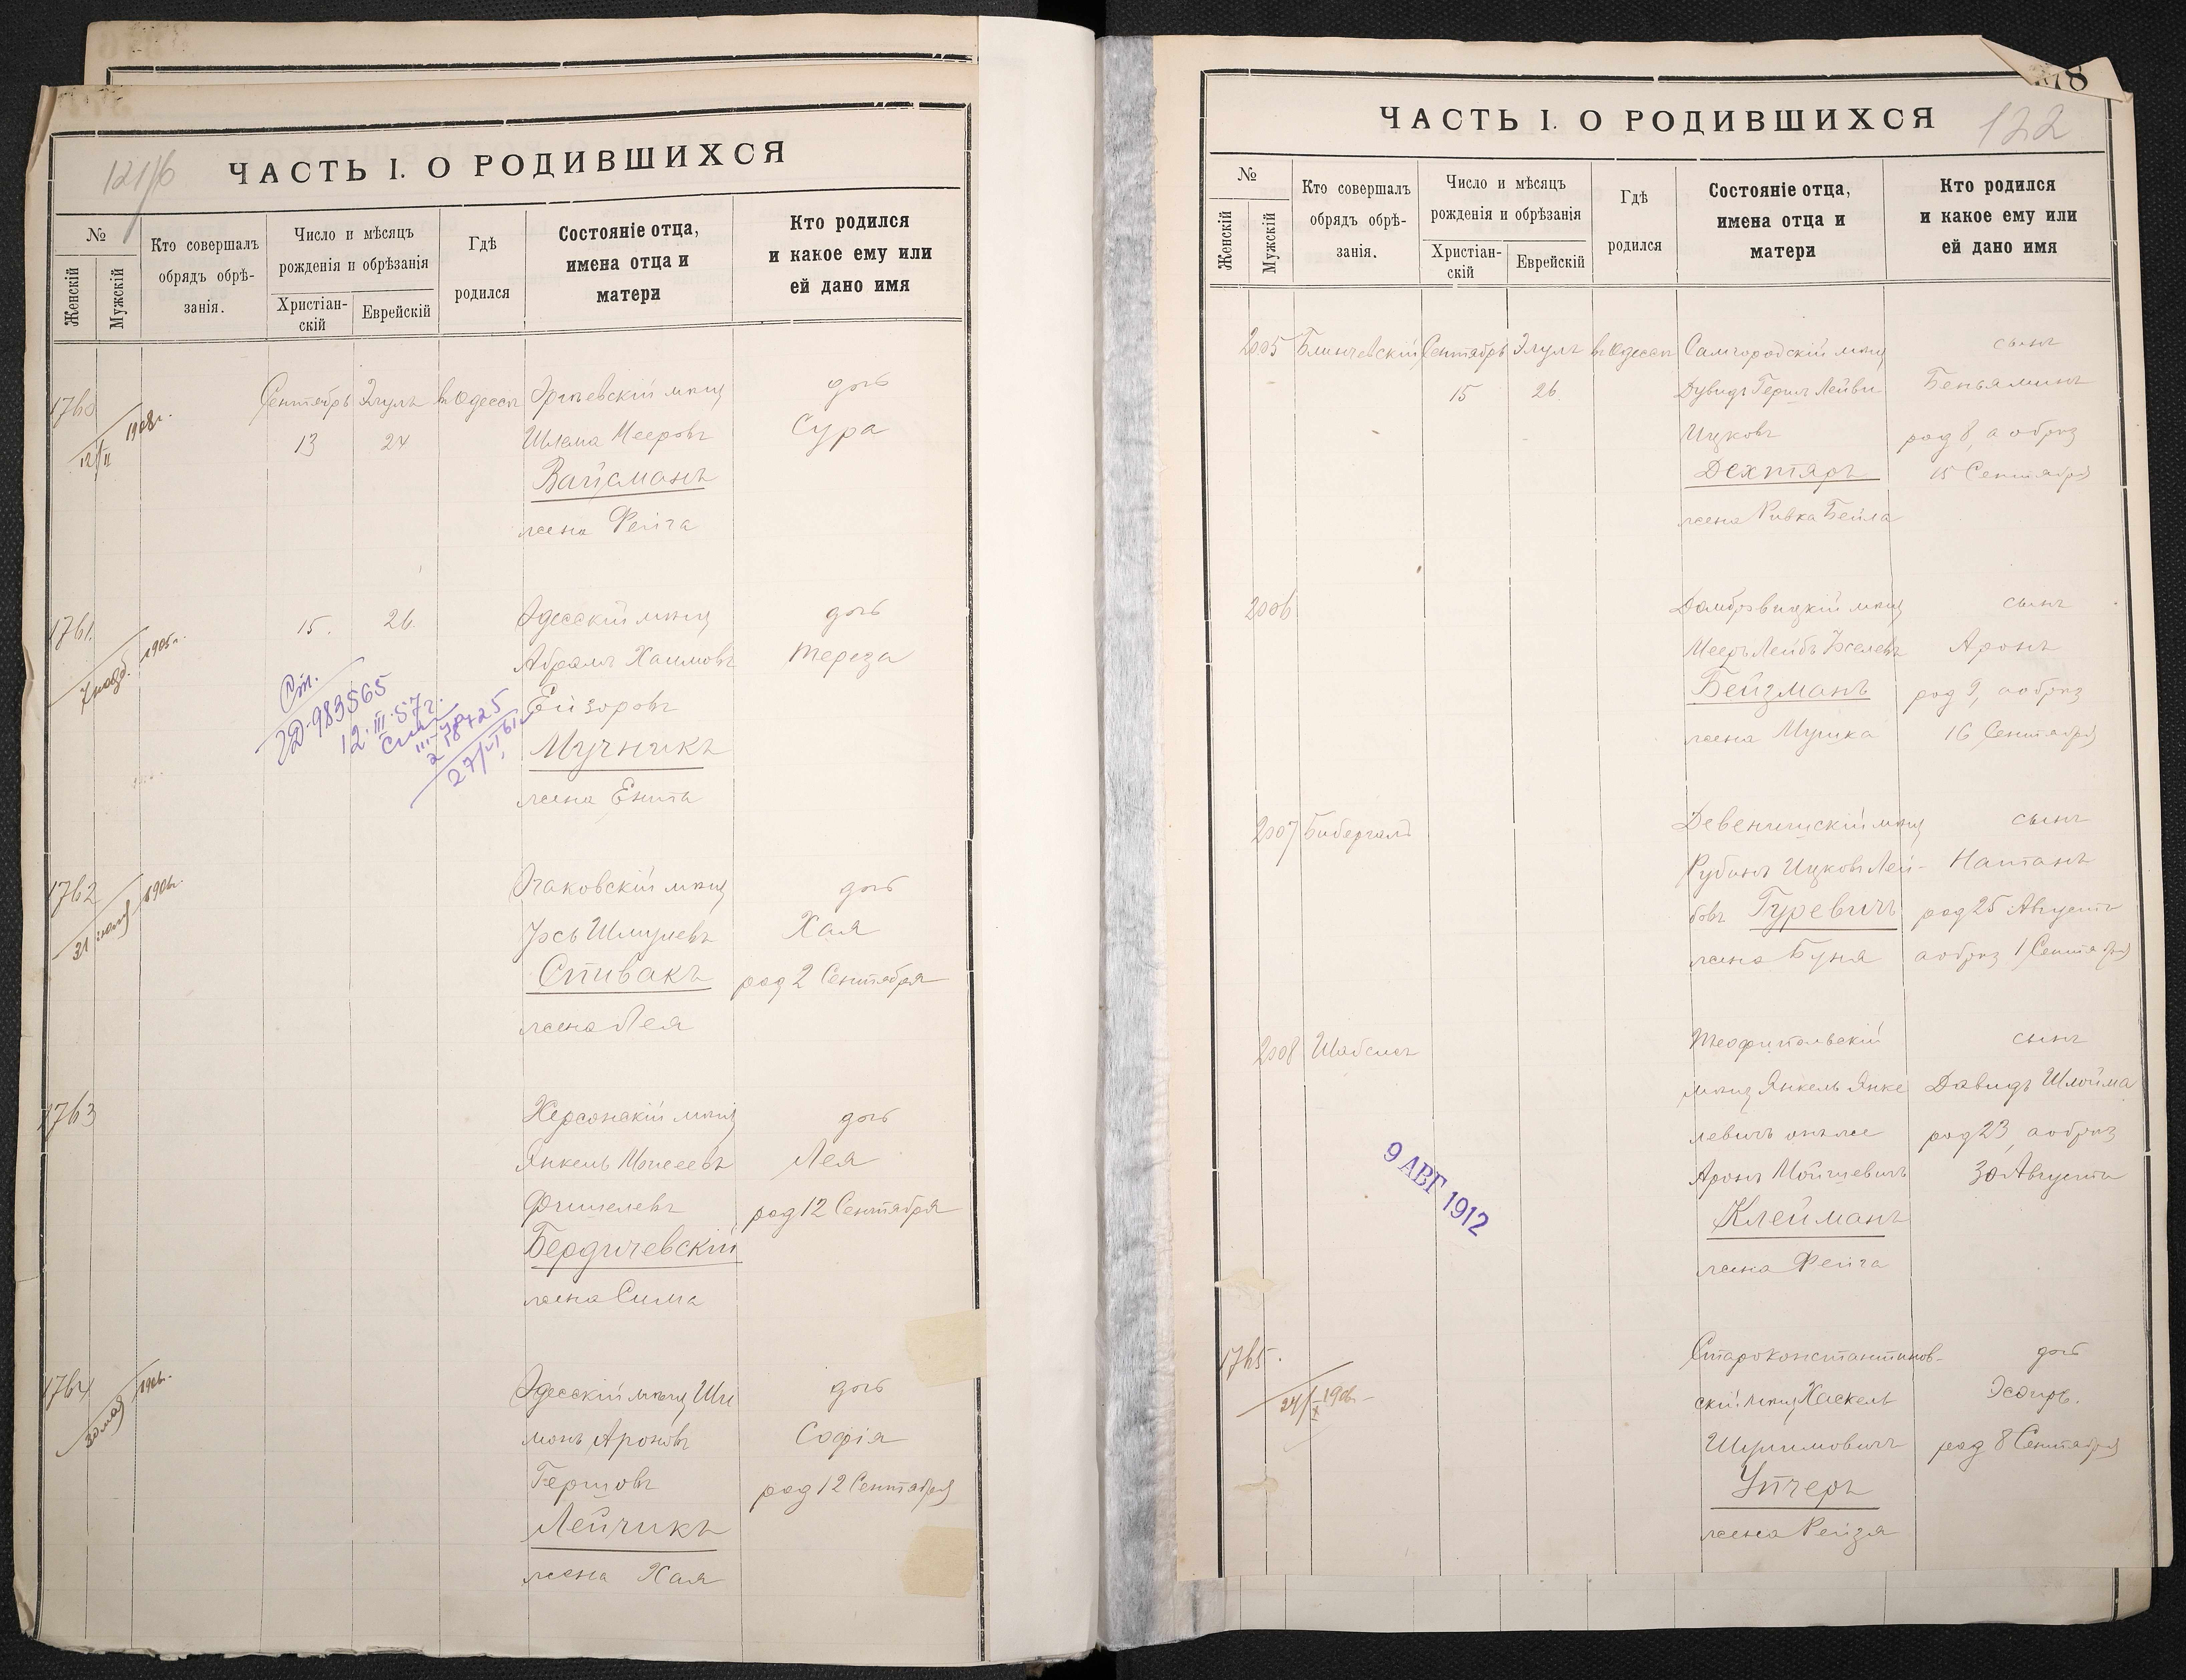 121/б
ЧАСТЬ I. О РОДИВШИХСЯ
№
Женскій
Мужскій
Кто совершалъ
обрядъ обрѣ-
занія.
Число и мѣсяцъ
рожденія и обрѣзанія
Христіан-
скій
Еврейскій
Гдѣ
родился
Состояніе отца,
имена отца и
матери
Кто родился
и какое ему или
ей дано имя
1760 Сентябрь Элулъ въ Одессѣ мѣщ дочь
13 24 Шлема Мееровъ Сура
12/II 1908г.
Вайсманъ
жена Фейга
1761. 15. 26. Одесскій мѣщ дочь
1905г.
Абрамъ Хаимовъ Тереза
Ейзоровъ
Мучникъ
жена Енита
Ст.
983565
12.III.57г.
218425
27/VI
1762 Очаковскій мѣщ дочь
31 1906г.
Іось Шмулевъ Хая
Спивакъ род 2 Сентября
жена Лея
1763 Херсонскій мѣщ дочь
Янкель Моисеевъ Лея
Фишелевъ род 12 Сентября
Бердичевскій
жена Сима
1764 Одесскій мѣщ Ши дочь
30 мая 1906г.
монъ Ароновъ Софія
Гершовъ род 12 Сентября
Лейчикъ
жена Хая
78
ЧАСТЬ I. О РОДИВШИХСЯ
122
№
Женскій
Мужскій
Кто совершалъ
обрядъ обрѣ-
занія.
Число и мѣсяцъ
рожденія и обрѣзанія
Христіан-
скій
Еврейскій
Гдѣ
родился
Состояніе отца,
имена отца и
матери
Кто родился
и какое ему или
ей дано имя
2005 Блинчевскій Сентябрь Элулъ въ Одессѣ Самгородскій мѣщ сынъ
15 26. Дувидъ Гершъ Лейви Беньяминъ
Ицковъ род 8, а обрѣз
Дехтяръ 15 Сентября
жена Ривка Бейла
2006 Домбровицкій мѣщ сынъ
Мееръ Лейбъ Іоселевъ Аронъ
Бейзманъ род 9, а обрѣз
жена Мушка 16 Сентября
2007 Бибергалъ Девенишскій мѣщ сынъ
Рубинъ Ицковъ Лей- Натанъ
бовъ Гуревичъ род 25 Августа
жена Буня а обрѣз 1 Сентября
2008 Шабсисъ Теофипольскій сынъ
мѣщ Янкель Янке Давидъ Шлойма
левичъ онъ же род 23, а обрѣз
Аронъ Мойшевичъ 30 Августа
Клейманъ
жена Фейга
9 АВГ 1912
1765. Староконстантинов- дочь
скій мѣщ Хаскель Эсѳирь.
Шулимовичъ род 8 Сентября
Утчеръ
жена Рейзя